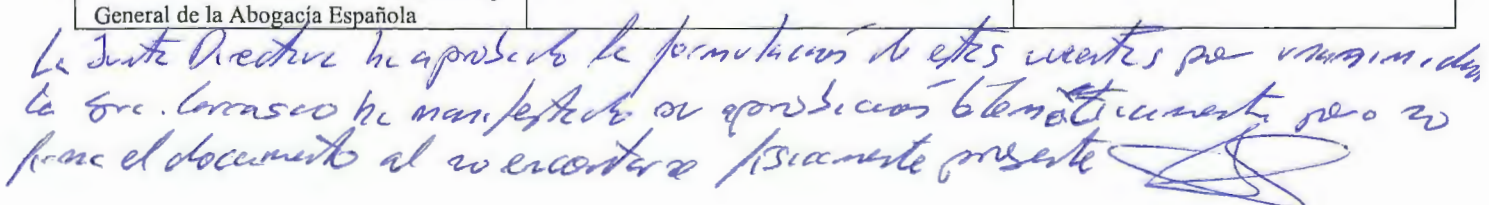 General de la Abogacía Española
La Junta Directiva ha aprobado la formulación de estas cuentas por unanimidad
la Sra. Carrasco ha manifestado su aprobación telemáticamente pero no
firma el documento al no encontarse físicamente presente